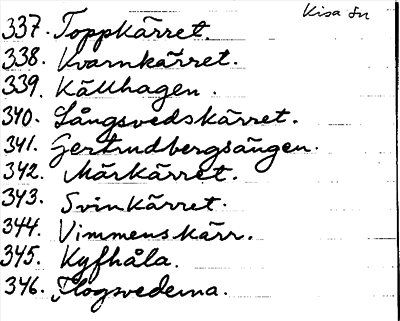 Kisa Sn
337. Toppkärret.
338. Kvarnkärret.
339. Källhagen.
340. Långsvedskärret.
341. Gertrudbergsängen.
342. Märkärret.
343. Svinkärret.
344. Vimmenskärr.
345. Kyfhåla.
346. Flogsvederna.